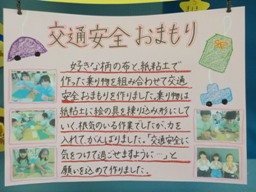 交通安全おまもり
好きな柄の布と、紙粘土で
作った乗り物を組み合わせて交通
安全おまもりを作りました。乗り物は
紙粘土に絵の具を練り込み形にして
いく、根気のいる作業でしたが、力を
入れて、がんばりました。"交通安全に
気をつけて過ごせますように…"と
願いを込めて作りました。